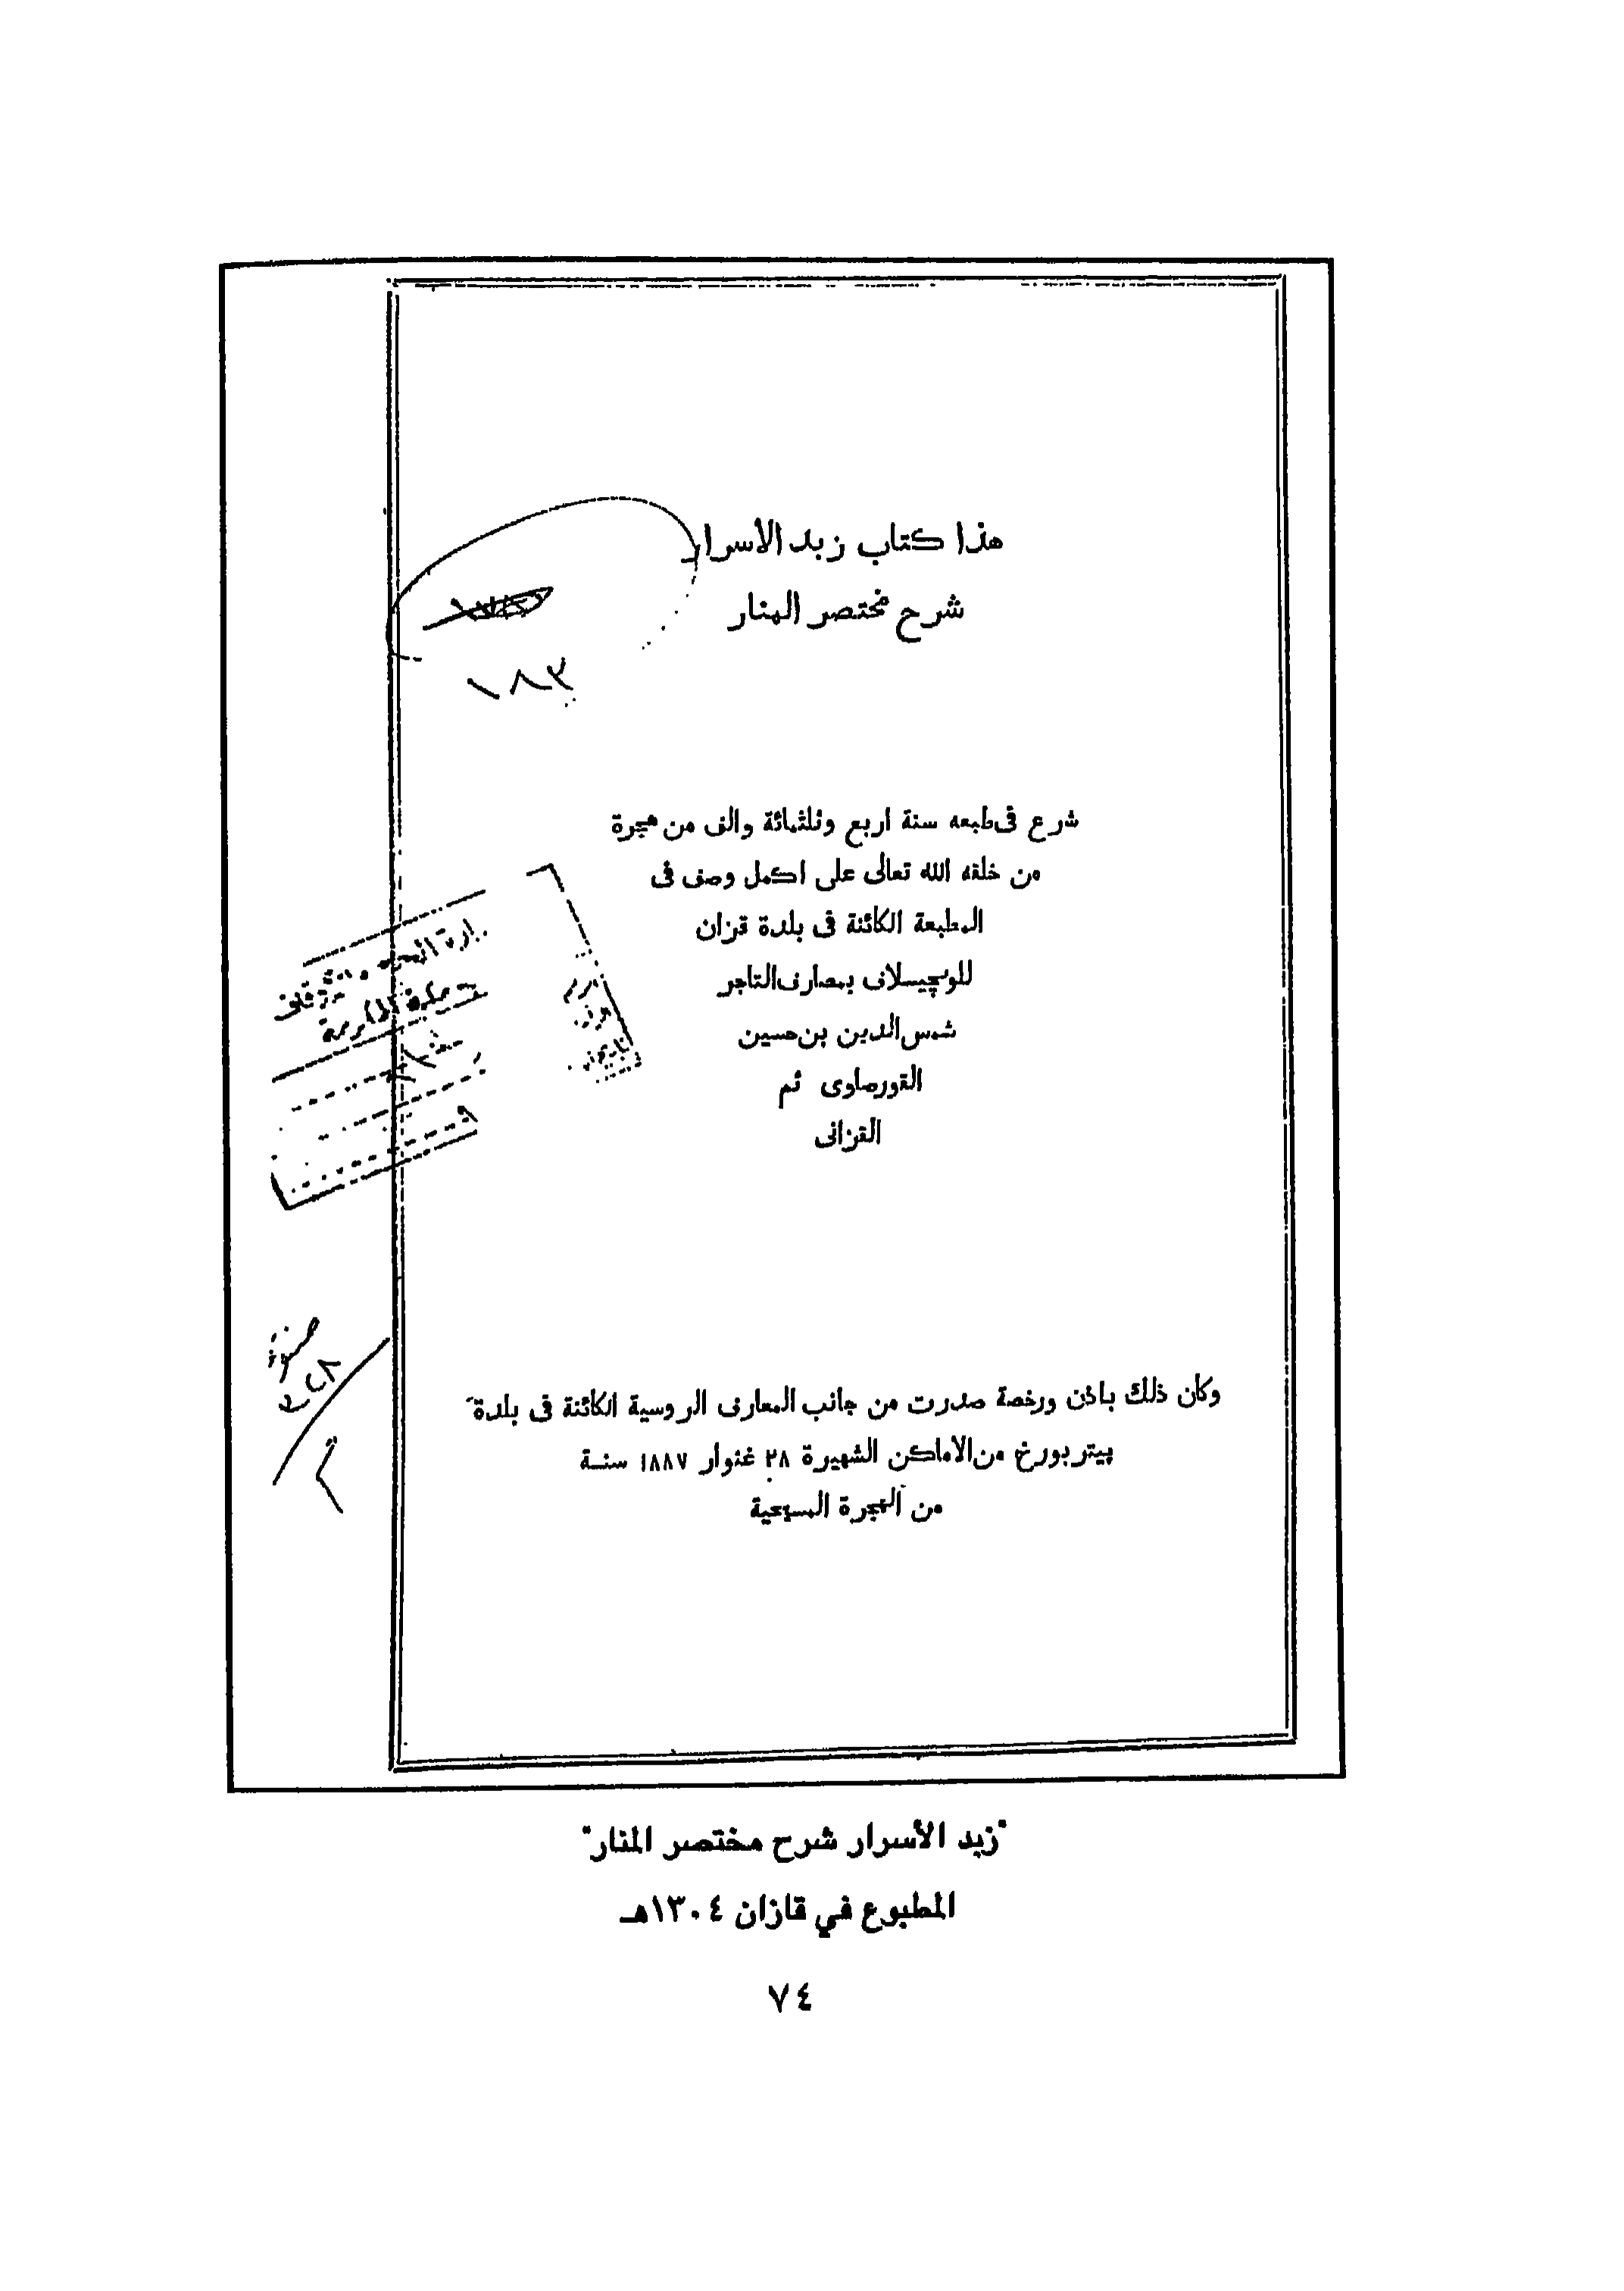 هذا كتاب زبد الأسرار
شرح مختصر المنار
١٨٣
شرع فى طبعه سنة اربع وثلثمائة والف من هجرة
من خلقه الله تعالى على اكمل وصف فى
المطبعة الكائنة فى بلدة قزان
للوچيسلاف بمصارف التاجر
شمس الدين بن حسين
القورصاوى ثم
القزانى
وكان ذلك باذن ورخصة صدرت من جانب المعارف الروسية الكائنة فى بلدة
پيتربورغ من الاماكن الشهيرة ٢٨ غنوار ١٨٨٧ سنة
من الهجرة المسيحية
"زبد الأسرار شرح مختصر المنار"
المطبوع في قازان ١٣٠٤هـ
٧٤